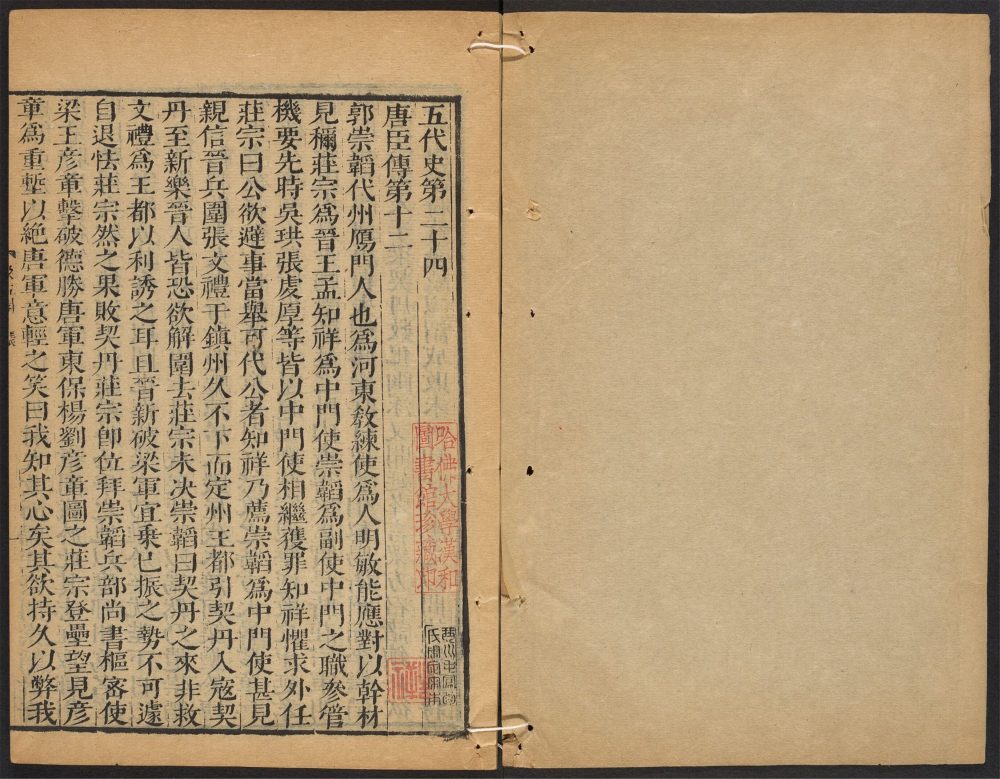 五代史第二十四
唐臣傳第十二
郭崇韜代州鴈門人也爲河東敎練使爲人明敏能應對以幹材
見稱莊宗爲晉王孟知祥爲中門使崇韜爲副使中門之職參管
機要先時吳珙張虔厚等皆以中門使相繼獲罪知祥懼求外任
莊宗曰公欲避事當舉可代公者知祥乃薦崇韜爲中門使甚見
親信晉兵圍張文禮于鎮州久不下而定州王都引契丹入寇契
丹至新樂晉人皆恐欲解圍去莊宗未决崇韜曰契丹之來非救
文禮爲王都以利誘之耳且晉新破梁軍宜乗已振之勢不可遽
自退怯莊宗然之果敗契丹莊宗卽位拜崇韜兵部尚書樞宻使
梁王彦章擊破德勝唐軍東保楊劉彦章圖之莊宗登壘望見彦
章爲重塹以絶唐軍意輕之笑曰我知其心矣其欲持久以弊我
哈佛大學漢和
圖書館珍藏印